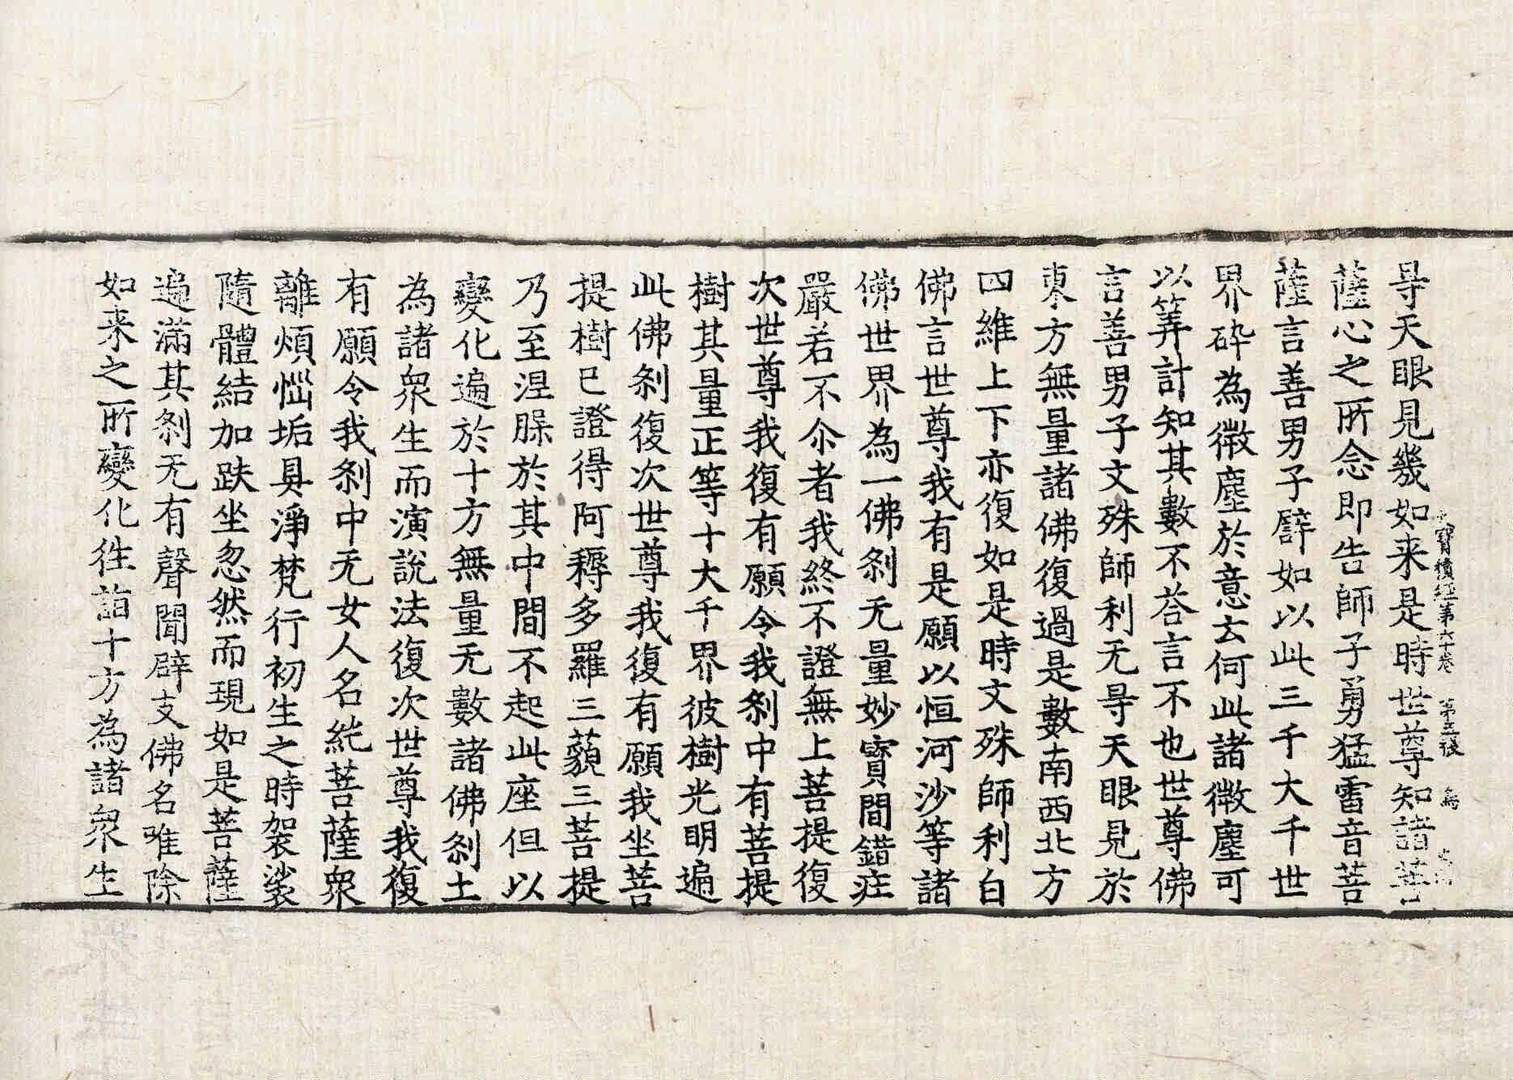 大寶積經第六十卷 第五張 鳥
㝵天眼見幾如来是時世尊知諸菩
薩心之所念即告師子勇猛雷音菩
薩言善男子譬如以此三千大千世
界碎為微塵於意云何此諸微塵可
以筭計知其數不荅言不也世尊佛
言善男子文殊師利无㝵天眼見於
東方無量諸佛復過是數南西北方
四維上下亦復如是時文殊師利白
佛言世尊我有是願以恒河沙等諸
佛世界為一佛刹无量妙寳間錯莊
嚴若不尒者我終不證無上菩提復
次世尊我復有願令我刹中有菩提
樹其量正等十大千界彼樹光明遍
此佛刹復次世尊我復有願我坐菩
提樹已證得阿耨多羅三藐三菩提
乃至涅槃於其中間不起此座但以
變化遍於十方無量无數諸佛刹土
為諸衆生而演說法復次世尊我復
有願令我刹中无女人名純菩薩衆
離煩惱垢具淨梵行初生之時袈裟
隨體結加趺坐忽然而現如是菩薩
遍滿其刹无有聲聞辟支佛名唯除
如来之所變化徃詣十方為諸衆生